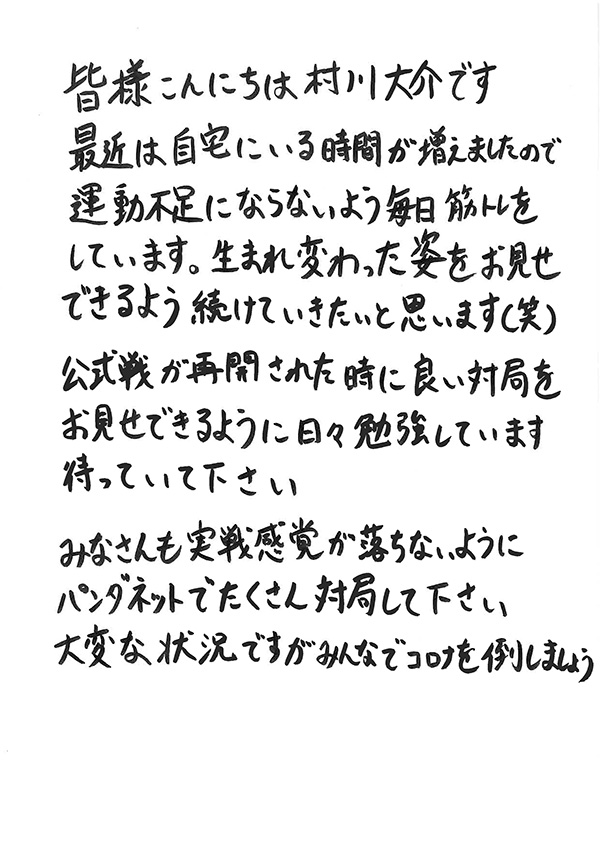 皆様こんにちは村川大介です
最近は自宅にいる時間が増えましたので
運動不足にならないよう毎日筋トレを
しています。生まれ変わった姿をお見せ
できるよう続けていきたいと思います(笑)
公式戦が再開された時に良い対局を
お見せできるように日々勉強しています
待っていて下さい
みなさんも実戦感覚が落ちないように
パンダネットでたくさん対局して下さい
大変な状況ですがみんなでコロナを倒しましょう